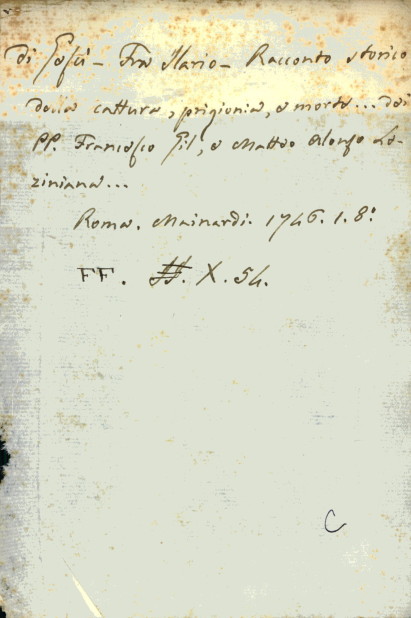 di Gesù - Fra Ilario - Racconto storico
della cattura, prigionia, e morte... dei
PP. Francesco Gil, e Matteo Alonso Le-
ziniana...
Roma. Mainardi. 1746. 1. 8:º
FF. X. 54.
C